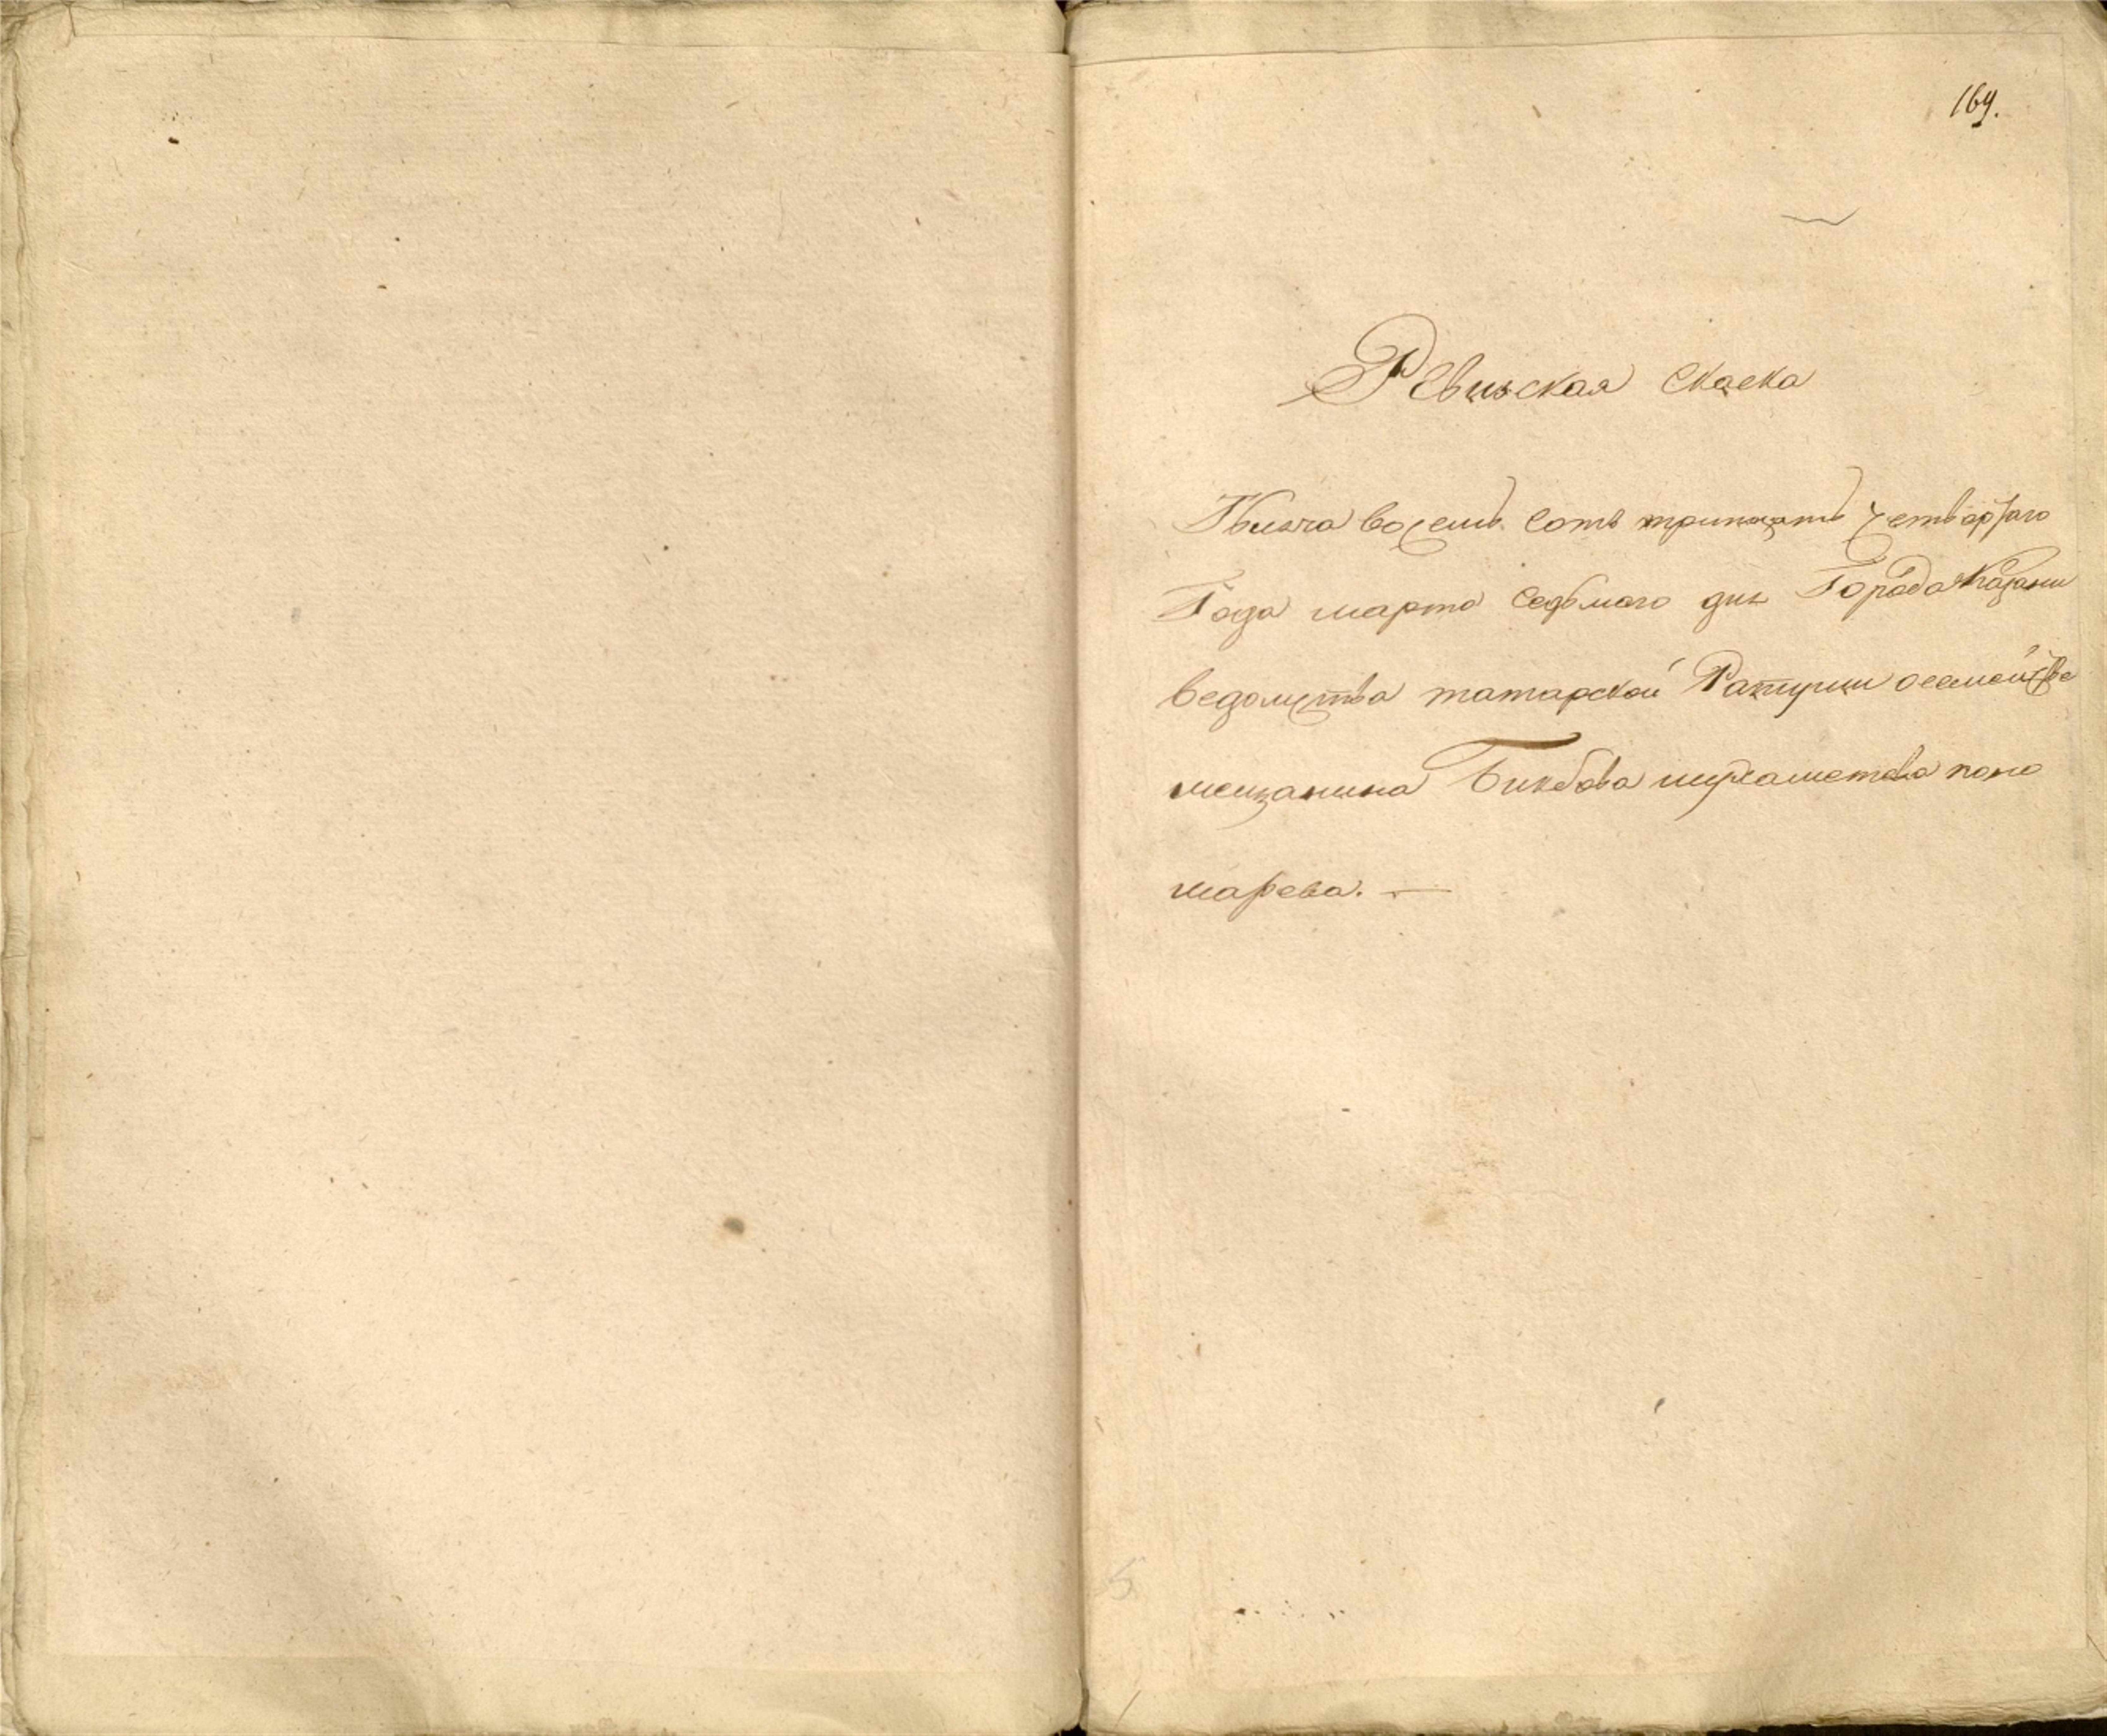 169.
Ревиская скаска
Тысеча восемь сотъ тритцать четвертаго
Года марта седьмаго дня Города Казани
ведомства татарской Ратуши осемействе
мещанина Бикбова
марева. —